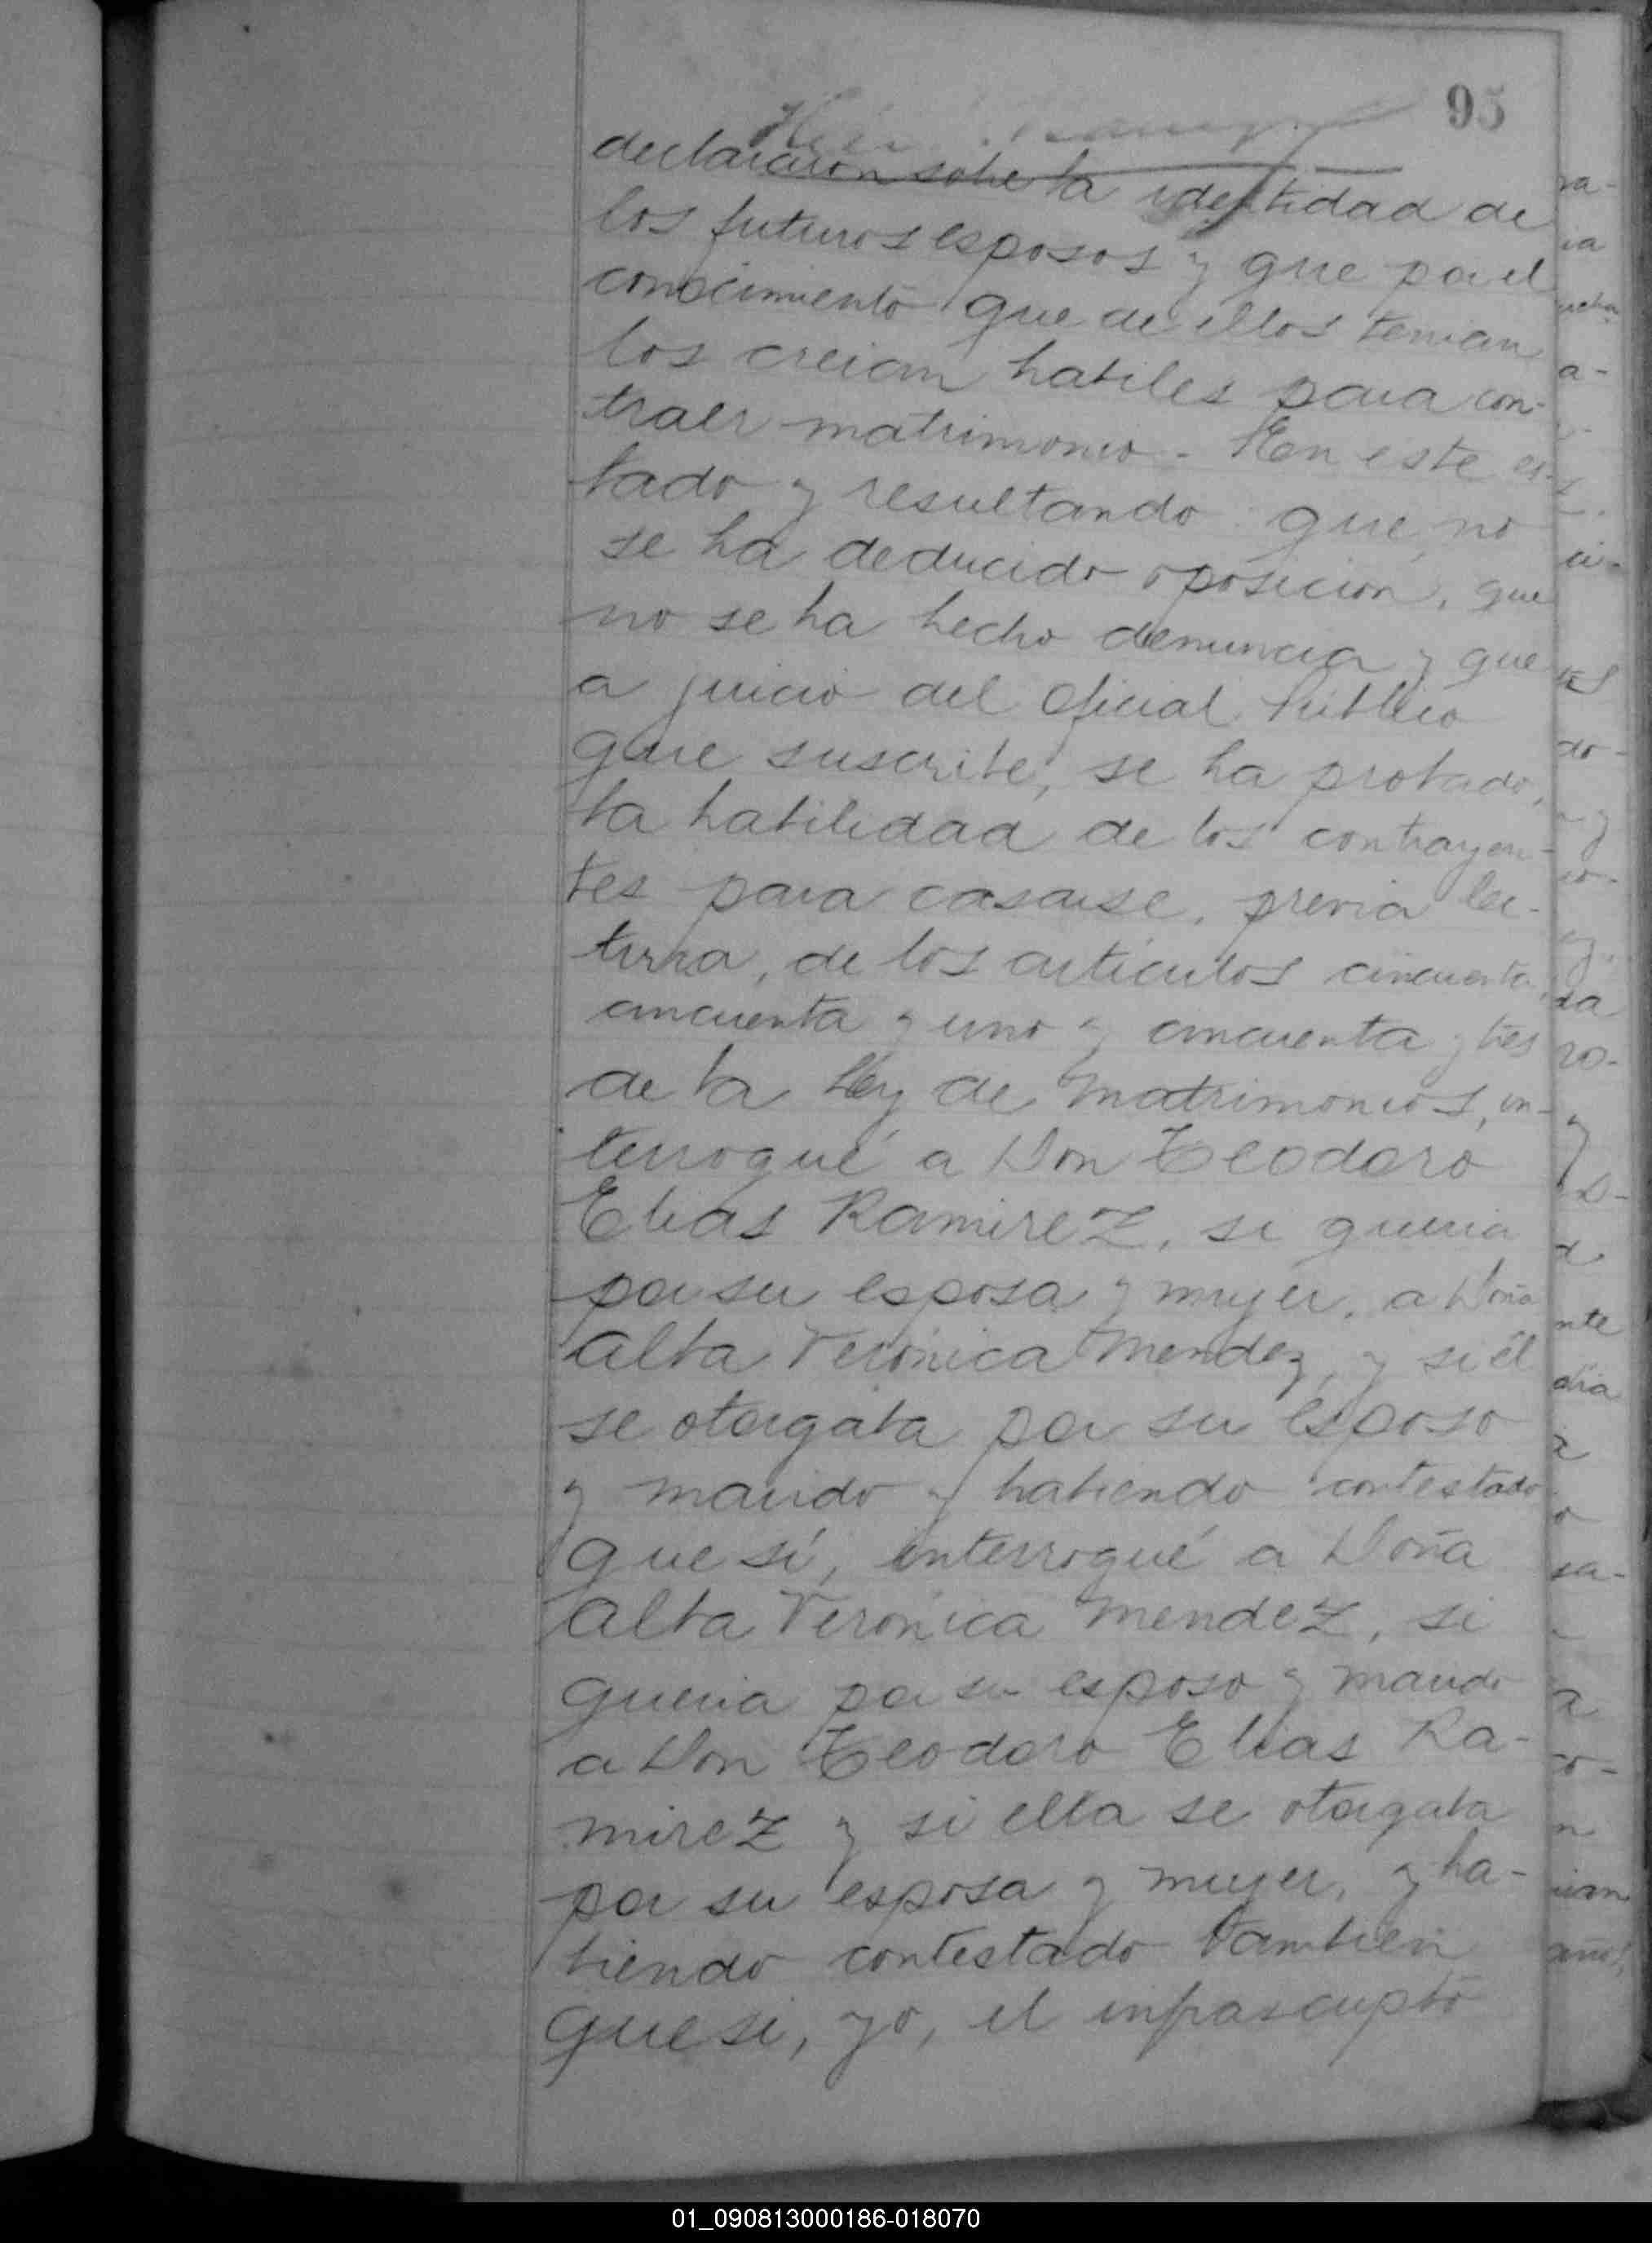 95
declaración sobe la identidad de
los futuros esposos y que por el
conocimiento que de ellos tenian
los creian habiles para con-
traer matrimonio - En este es-
tado y resultando que no
se ha deducido oposicion, que
no se ha hecho denuncia y que
a juicio del Oficial Público
que suscribe, se ha probado,
la habilidad de los contrayen-
tes para casarse, previa lec-
tura, de los artículos cincuenta,
cincuenta y uno y cincuenta y tres
de la Ley de Matrimonios, in-
terrogué a Don Teodoro
Elias Ramirez, si queria
por su esposa y mujer, a Doña
Alba Verónica Mendez, y si él
se otorgaba por su esposo
y marido y habiendo contestado
que sí, interrogué a Doña
Alba Verónica Mendez, si
queria por su esposo y marido
a Don Teodoro Elias Ra-
mirez y si ella se otorgaba
por su esposa y mujer, y ha-
biendo contestado tambien
que si, yo, el infrascripto
01_090813000186-018070